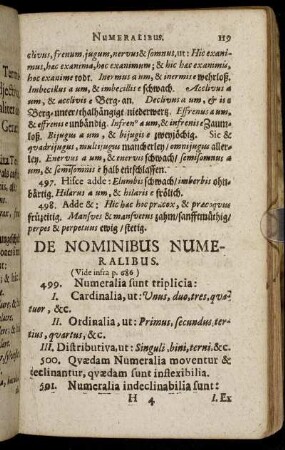 NUMERALIBUS. 119
clivus, frenum, jugum, nervus & somnus, ut: Hic exani-
mus, hæc exanima, hoc exanimum; & hic hæc exanimis,
hoc exanime todt. Inermus a um, & inermis e wehrloß.
Imbecillus a um, & imbecillis e schwach. Acclivus a
um, & acclivis e Berg-an. Declivus a um,
Berg-unter/ thalhängige niederwerg. Effrenus a um,
& effrenis e unbändig. Infrenus a um, & infrenis e Zaum-
loß. Bijugus a um, & bijugis e zweyjöchig. Sic &
quadrijugus, multijugus mancherley/ omnijugus aller-
ley. Enervus a um, & enervis schwach/ semisomnus a
um, & semisomnis e halb entschlaffen.
497. Hisce adde: Elumbis schwach/ imberbis ohn-
bärtig. Hilarus a um, & hilaris e frölich.
498. Adde &: Hic hæc hoc præcox, & præcoquis
früzeitig. Mansues & mansuetus zahm/ sanfftmüthig/
perpes & perpetuus ewig/ stetig.
DE NOMINIBUS NUME-
RALIBUS.
(Vide infra p. 686)
499. Numeralia sunt triplicia:
I. Cardinalia, ut: Unus, duo, tres, qua-
tuor, &c.
II. Ordinalia, ut: Primus, secundus, ter-
tius, quartus, &c.
III. Distributiva, ut: Singuli, bini, terni, &c.
500. Quædam Numeralia moventur &
declinantur, quædam sunt inflexibilia.
501. Numeralia indeclinabilia sunt:
H 4 I. Ex